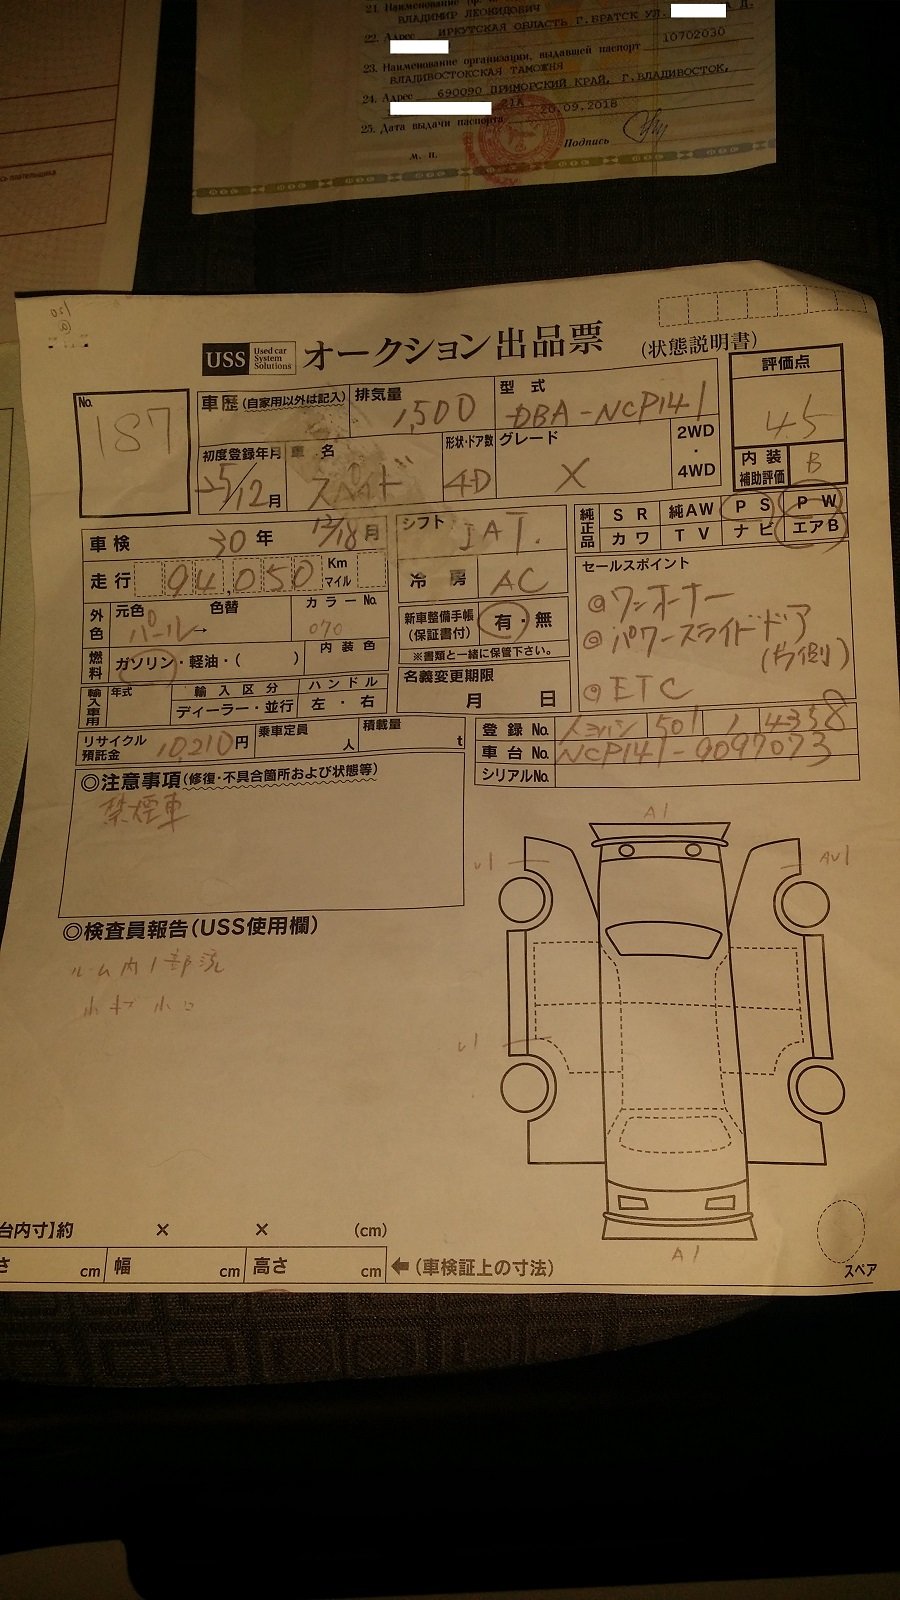 21. Наименование
ВЛАДИМИР ЛЕОНИДОВИЧ
22. Адрес ИРКУТСКАЯ ОБЛАСТЬ Г.БРАТСК УЛ. Д.
23. Наименование организации, выдавшей паспорт 10702030
ВЛАДИВОСТОКСКАЯ ТАМОЖНЯ
24. Адрес 690090 ПРИМОРСКИЙ КРАЙ, Г.ВЛАДИВОСТОК,
21А
25. Дата выдачи паспорта 20.09.2018
М. П. Подпись
USS Used car System Solutions オークション出品票 (状態説明書)
No. 187
車歴 (自家用以外は記入) 排気量 1,500 型式 DBA-NCP141
評価点 4.5
初度登録年月 25/12月 車名 スペイド 形状・ドア数 4D グレード X 2WD・4WD
内装補助評価 B
車検 30年 12/18月 シフト IAT.
純正品 SR 純AW PS PW
カワ TV ナビ エアB
走行 94,050 Km マイル 冷房 AC
セールスポイント
◎ワンオーナー
◎パワースライドドア
(片側)
◎ETC
外色 元色 パール→ 色替 カラーNo. 070
新車整備手帳(保証書付) 有・無
※書類と一緒に保管下さい。
燃料 ガソリン・軽油・( ) 内装色
名義変更期限 月 日
輸入車用 年式 輸入区分 ハンドル
ディーラー・並行 左・右
リサイクル預託金 10,210円 乗車定員 人 積載量 t
登録No. 501 4358
車台No. NCP141-9097073
シリアルNo.
◎注意事項(修復・不具合箇所および状態等)
禁煙車
◎検査員報告(USS使用欄)
ルーム内1部汚
A1
U1
AU1
U1
A1
台内寸】約 × × (cm)
さ cm 幅 cm 高さ cm ←(車検証上の寸法)
スペア